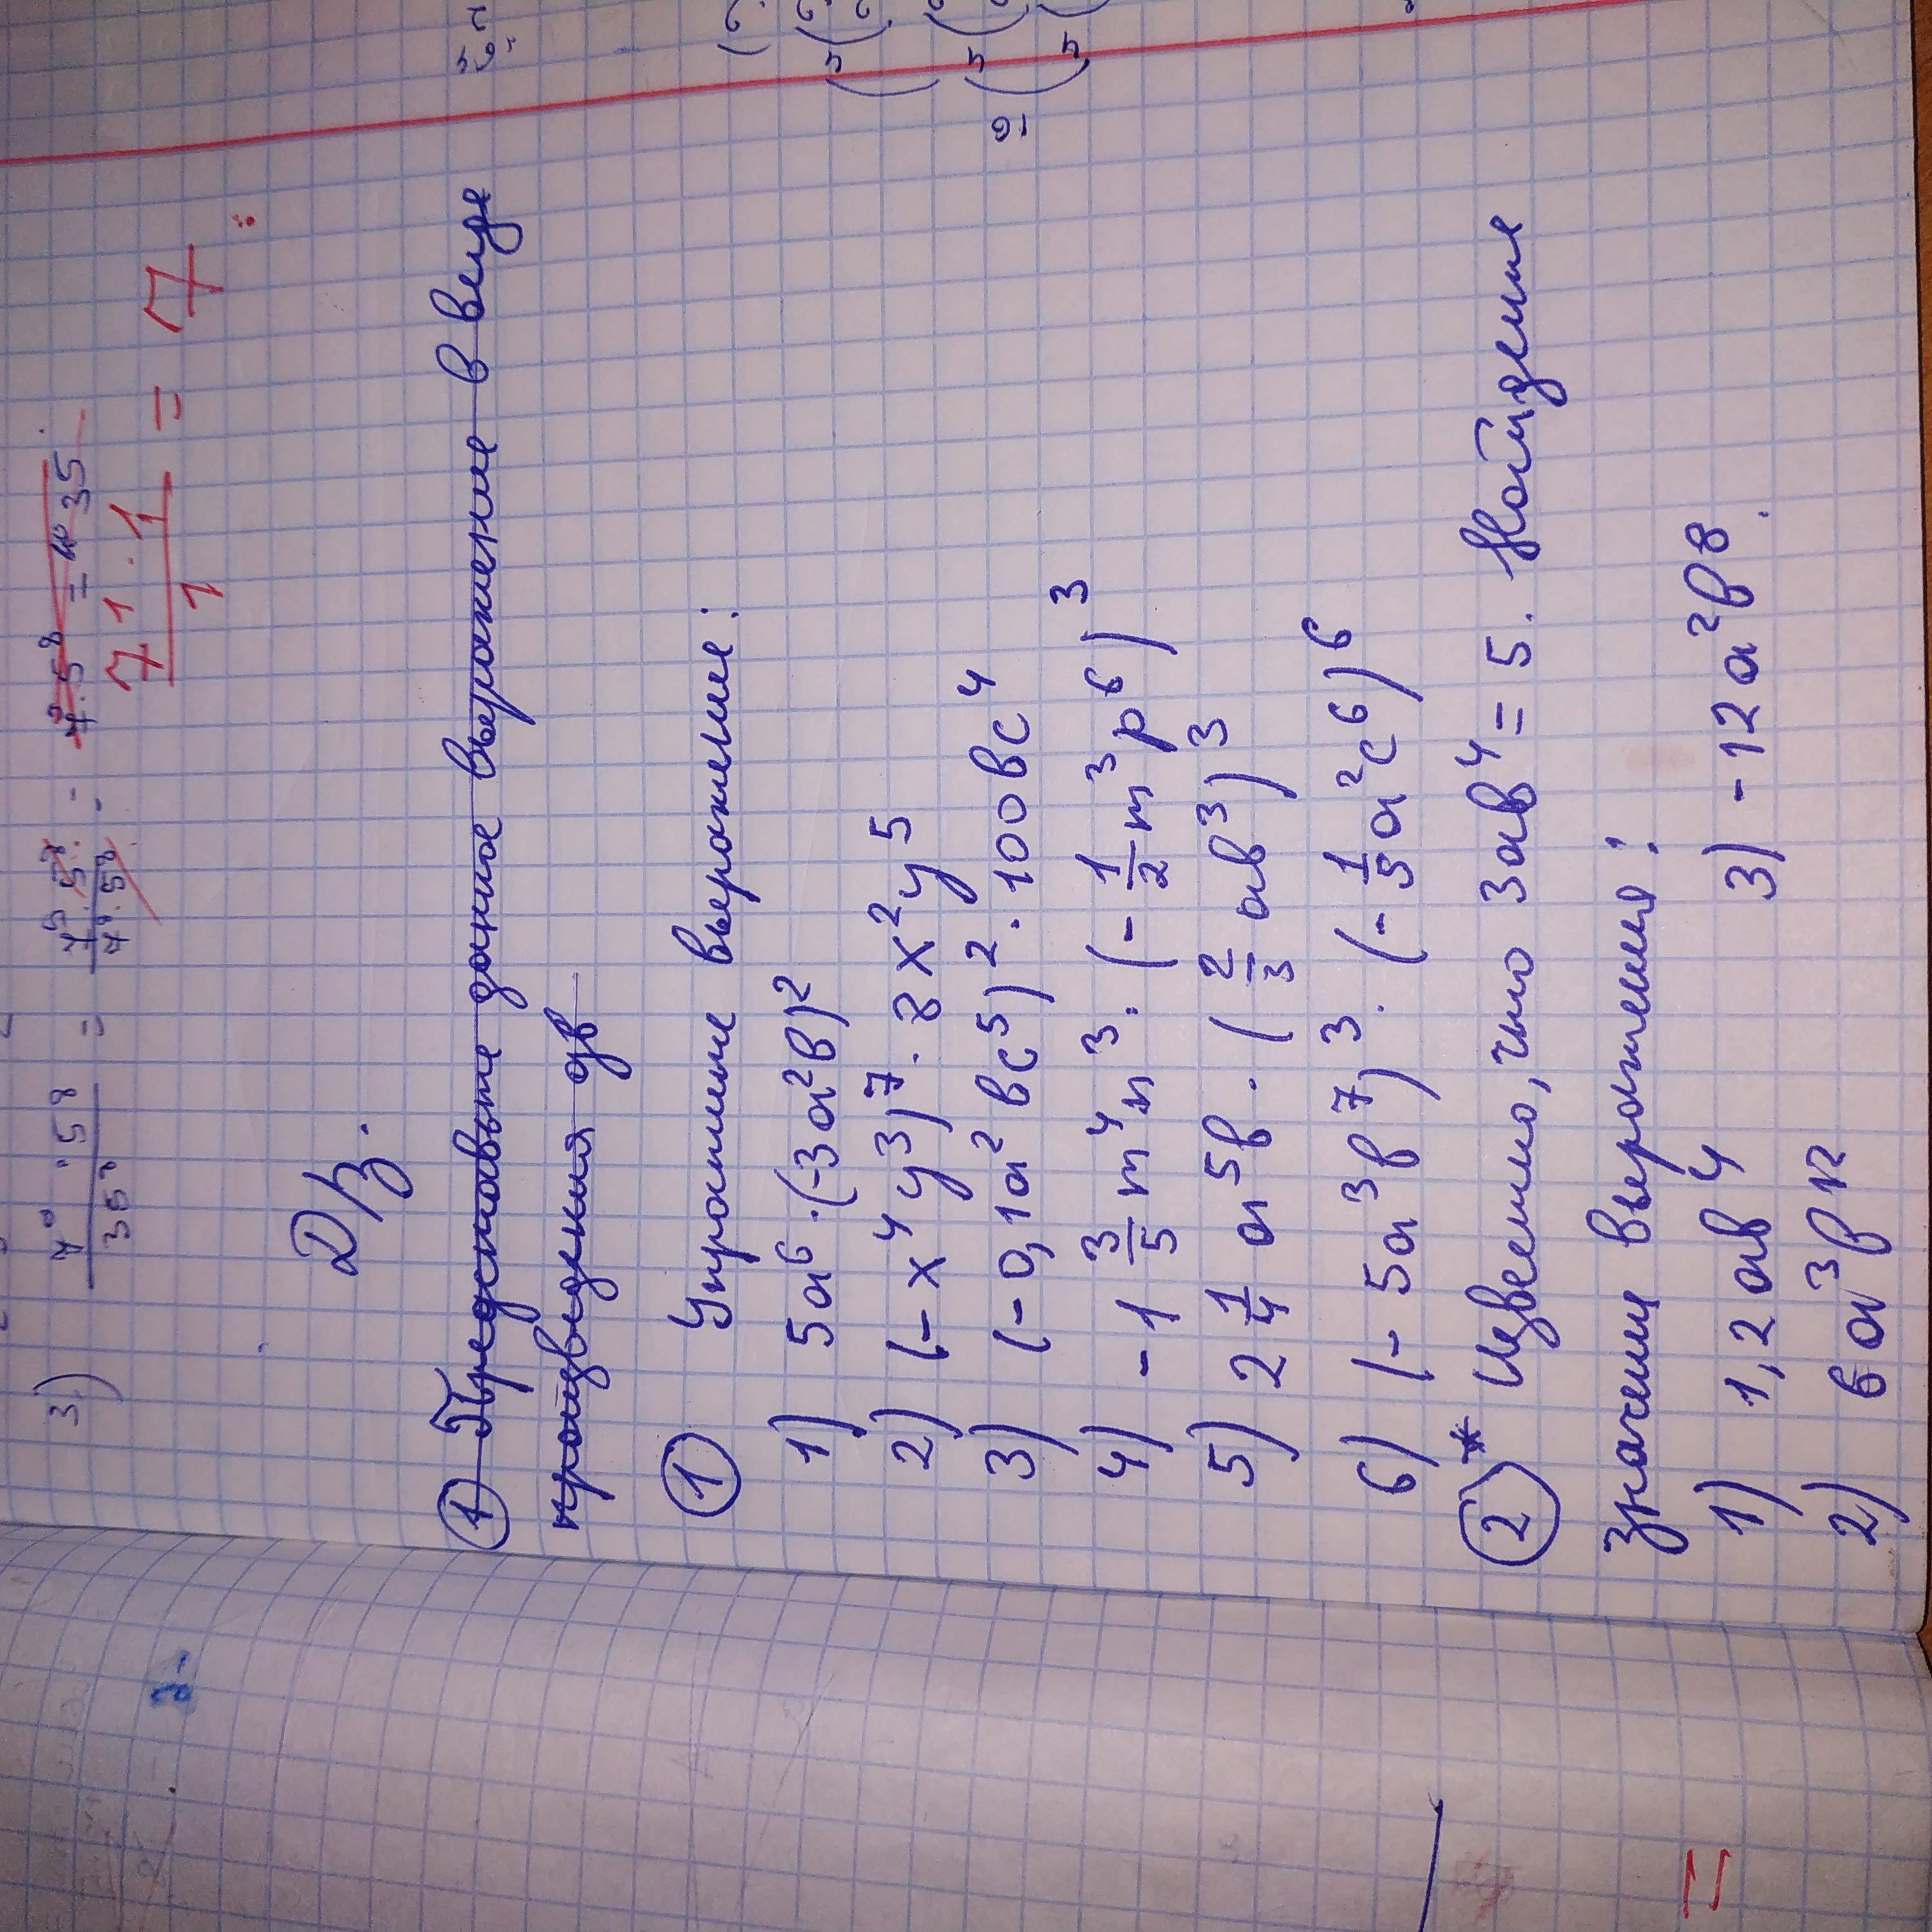 3) = =
7 1 · 1 / 1 = 7
Д/З.
① Представьте данное выражение в виде
произведения дв
① Упростите выражение:
1) 5a⁶·(-3a²b)²
2) (-x⁴y³)⁷·8x²y⁵
3) (-0,1a²bc⁵)²·100bc⁴
4) -1 3/5 m⁴n³·(-1/2 m³p⁶)³
5) 2 1/4 a⁵b·(2/3 ab³)³
6) (-5a³b⁷)³·(-1/5 a²c⁶)⁶
②* Известно, что 3ab⁴=5. Найдите
значение выражения:
1) 1,2ab⁴ 3) -12a²b⁸.
2) 6a³b¹²